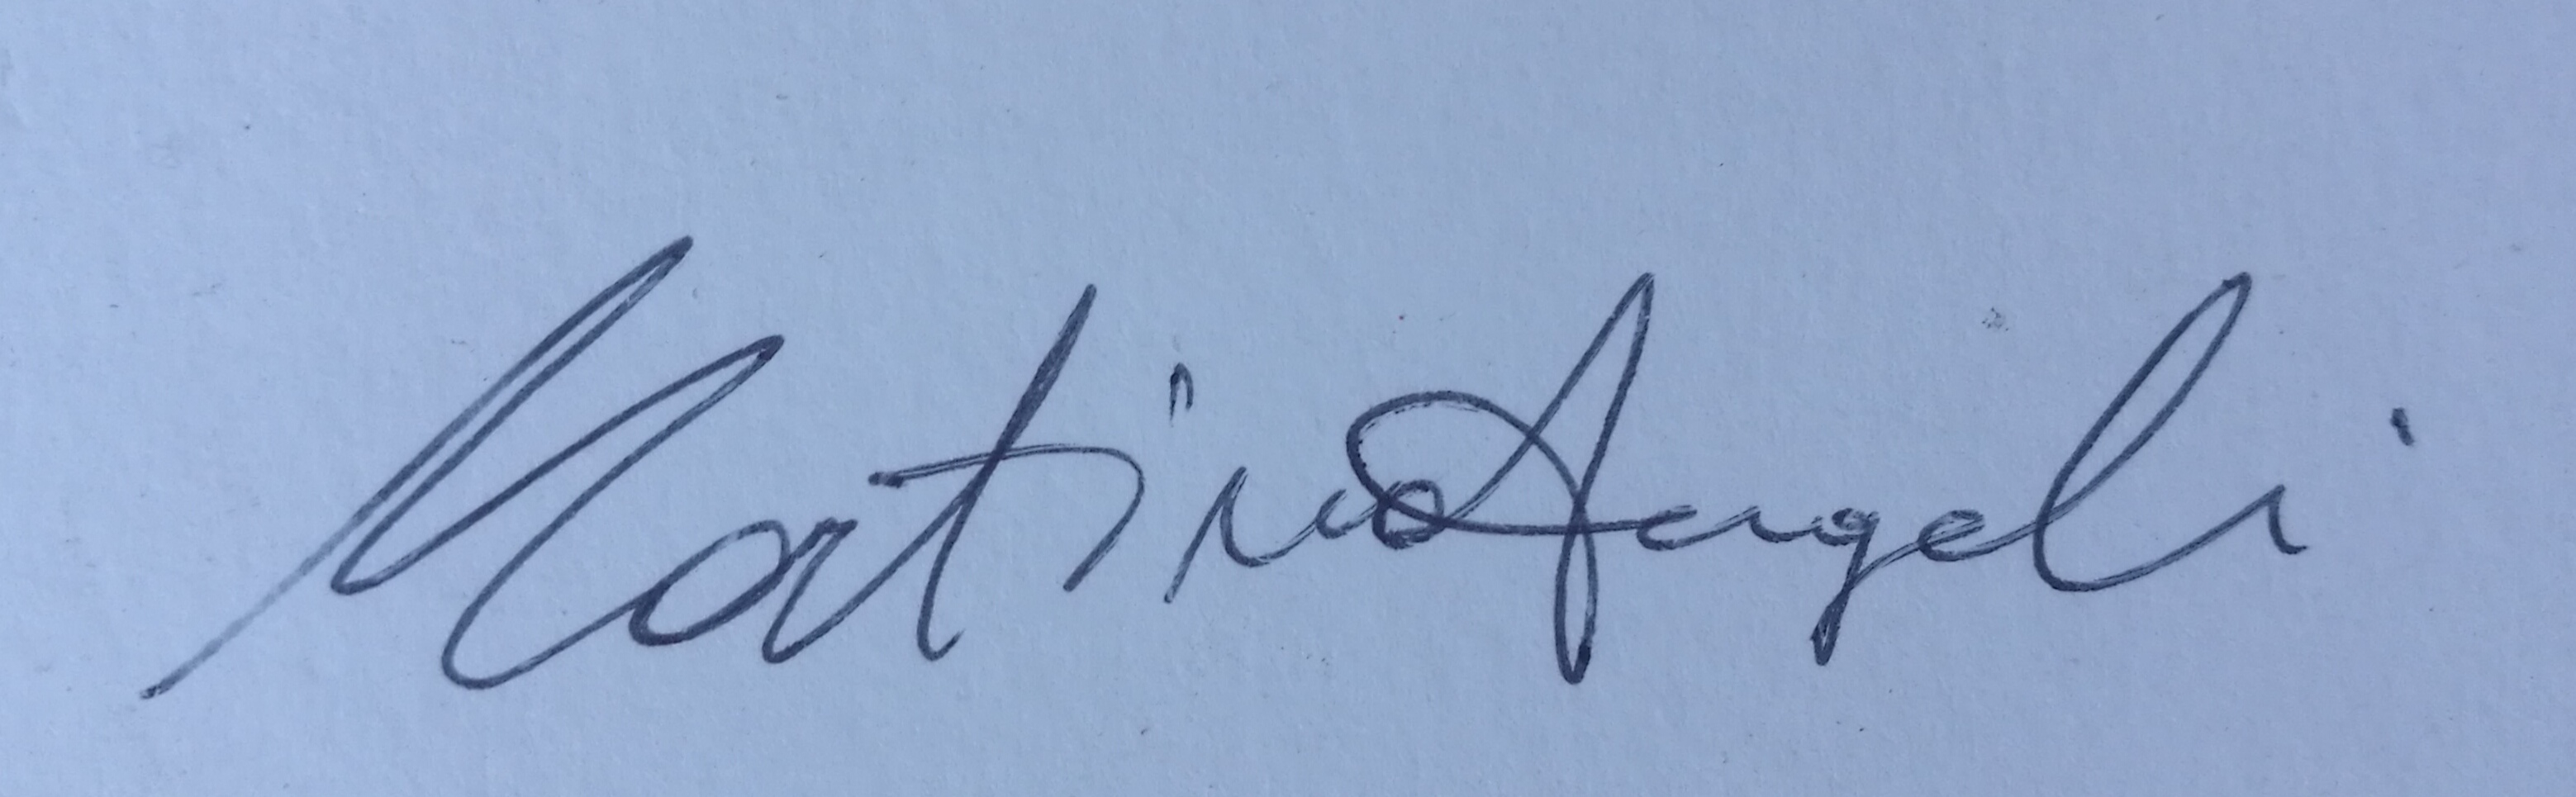 Martina Angeli